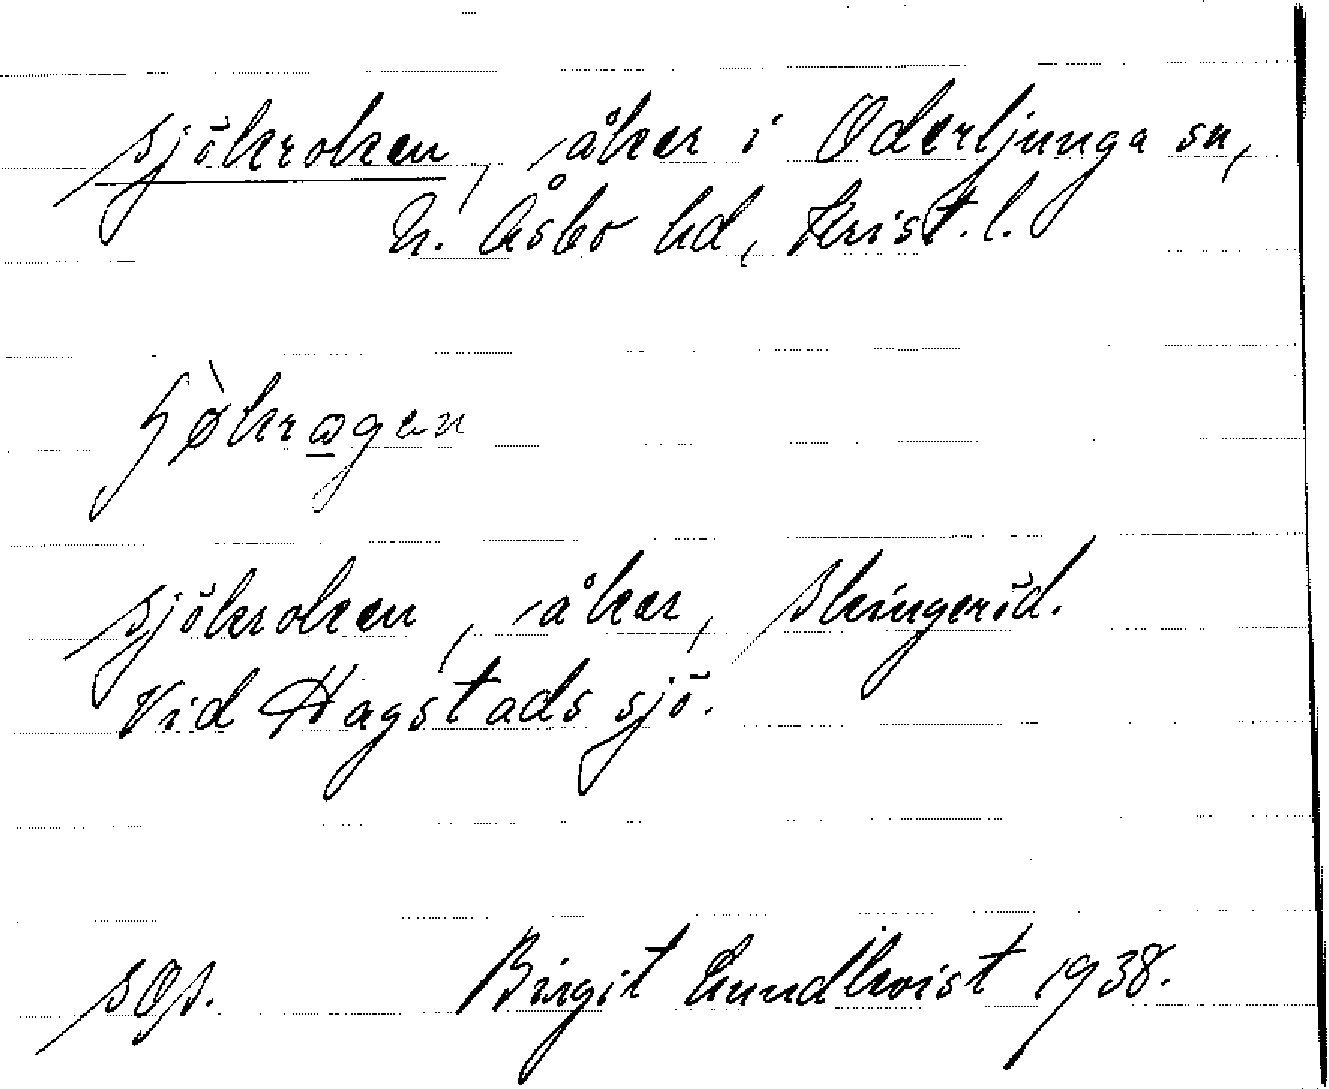 Sjökroken, åker i Oderljunga sn,
N. Åsbo hd, Krist. l.
ʃø̀krωgen
Sjökroken, åker, Skingeröd.
Vid Hagstads sjö.
SOA. Birgit Lundkvist 1938.